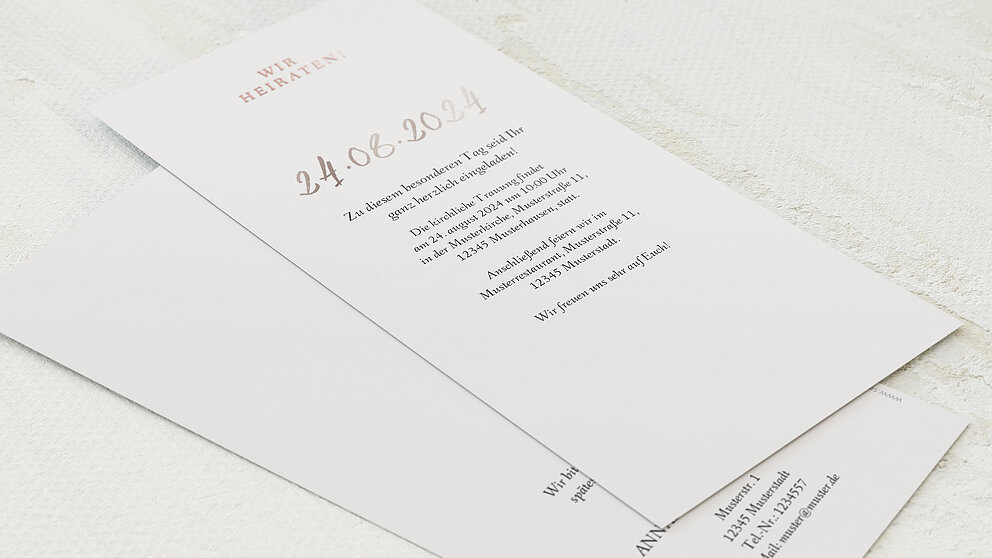 WIR
HEIRATEN!
24.08.2024
Zu diesem besonderen Tag seid Ihr
ganz herzlich eingeladen!
Die kirchliche Trauung findet
am 24. august 2024 um 10:00 Uhr
in der Musterkirche, Musterstraße 11,
12345 Musterhausen, statt.
Anschließend feiern wir im
Musterrestaurant, Musterstraße 11,
12345 Musterstadt.
Wir freuen uns sehr auf Euch!
www.s
Wir bit
späte
ANN
Musterstr. 1
12345 Musterstadt
Tel.-Nr.: 1234557
Mail: muster@muster.de